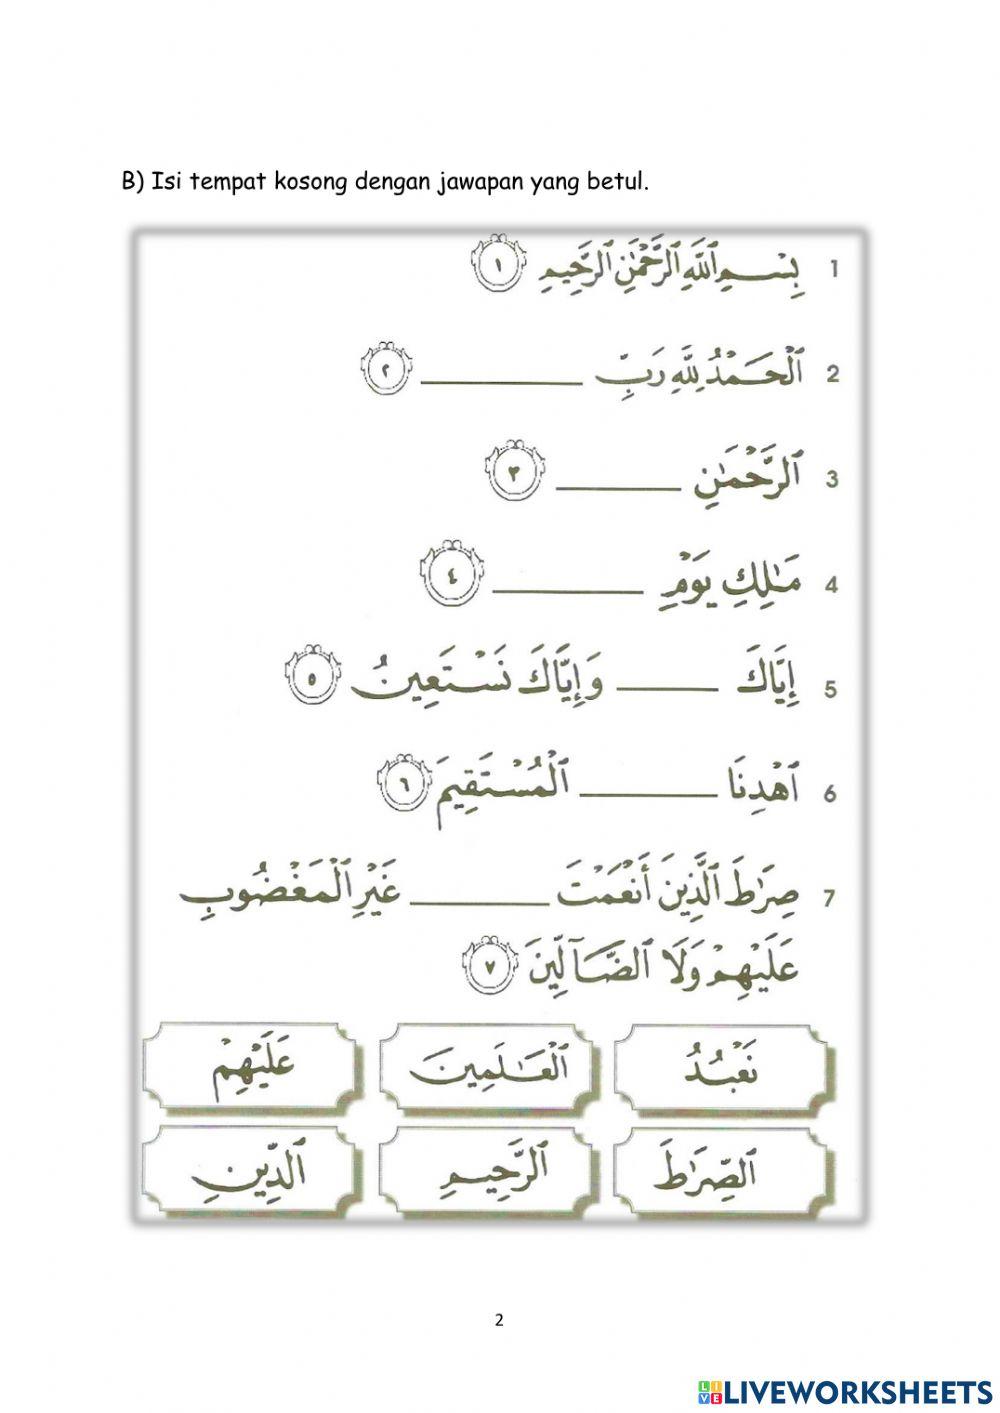 B) Isi tempat kosong dengan jawapan yang betul.
1 بِسْمِ ٱللَّهِ ٱلرَّحْمَٰنِ ٱلرَّحِيمِ ١
2 ٱلْحَمْدُ لِلَّهِ رَبِّ ____________ ٢
3 ٱلرَّحْمَٰنِ _________ ٣
4 مَٰلِكِ يَوْمِ ___________ ٤
5 إِيَّاكَ ________ وَإِيَّاكَ نَسْتَعِينُ ٥
6 ٱهْدِنَا __________ ٱلْمُسْتَقِيمَ ٦
7 صِرَٰطَ ٱلَّذِينَ أَنْعَمْتَ __________ غَيْرِ ٱلْمَغْضُوبِ
عَلَيْهِمْ وَلَا ٱلضَّآلِّينَ ٧
نَعْبُدُ ٱلْعَٰلَمِينَ عَلَيْهِمْ
ٱلصِّرَٰطَ ٱلرَّحِيمِ ٱلدِّينِ
2
LIVEWORKSHEETS